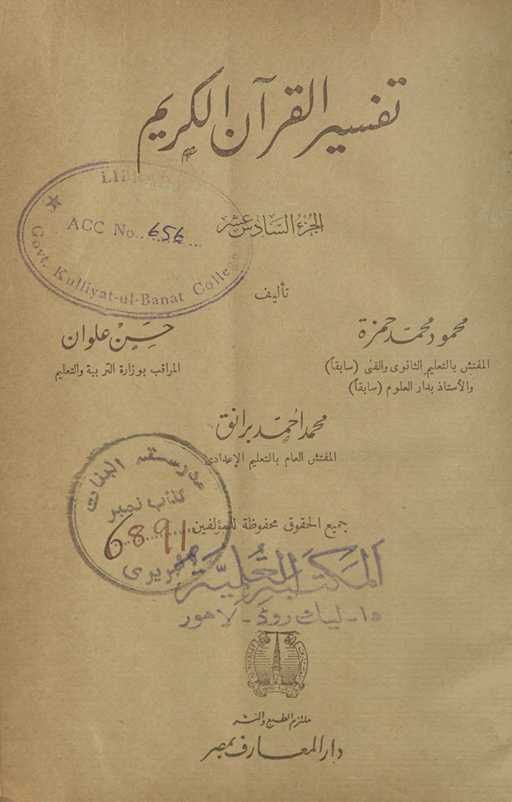 تفسير القرآن الكريم
LIBRARY
ACC No. 656
Govt. Kulliyat-ul-Banat College
الجزء السادس عشر
تأليف
محمود محمد حمزة
المفتش بالتعليم الثانوى والفنى (سابقاً)
والأستاذ بدار العلوم (سابقاً)
حسن علوان
المراقب بوزارة التربية والتعليم
محمد أحمد برانق
المفتش العام بالتعليم الإعدادى
مدرسة البنات
كتاب نمبر
6891
لائبريرى
جميع الحقوق محفوظة للمؤلفين
المكتبة العلمية
١٥- ليك روڈ - لاهور
ملتزم الطبع والنشر
دار المعارف بمصر